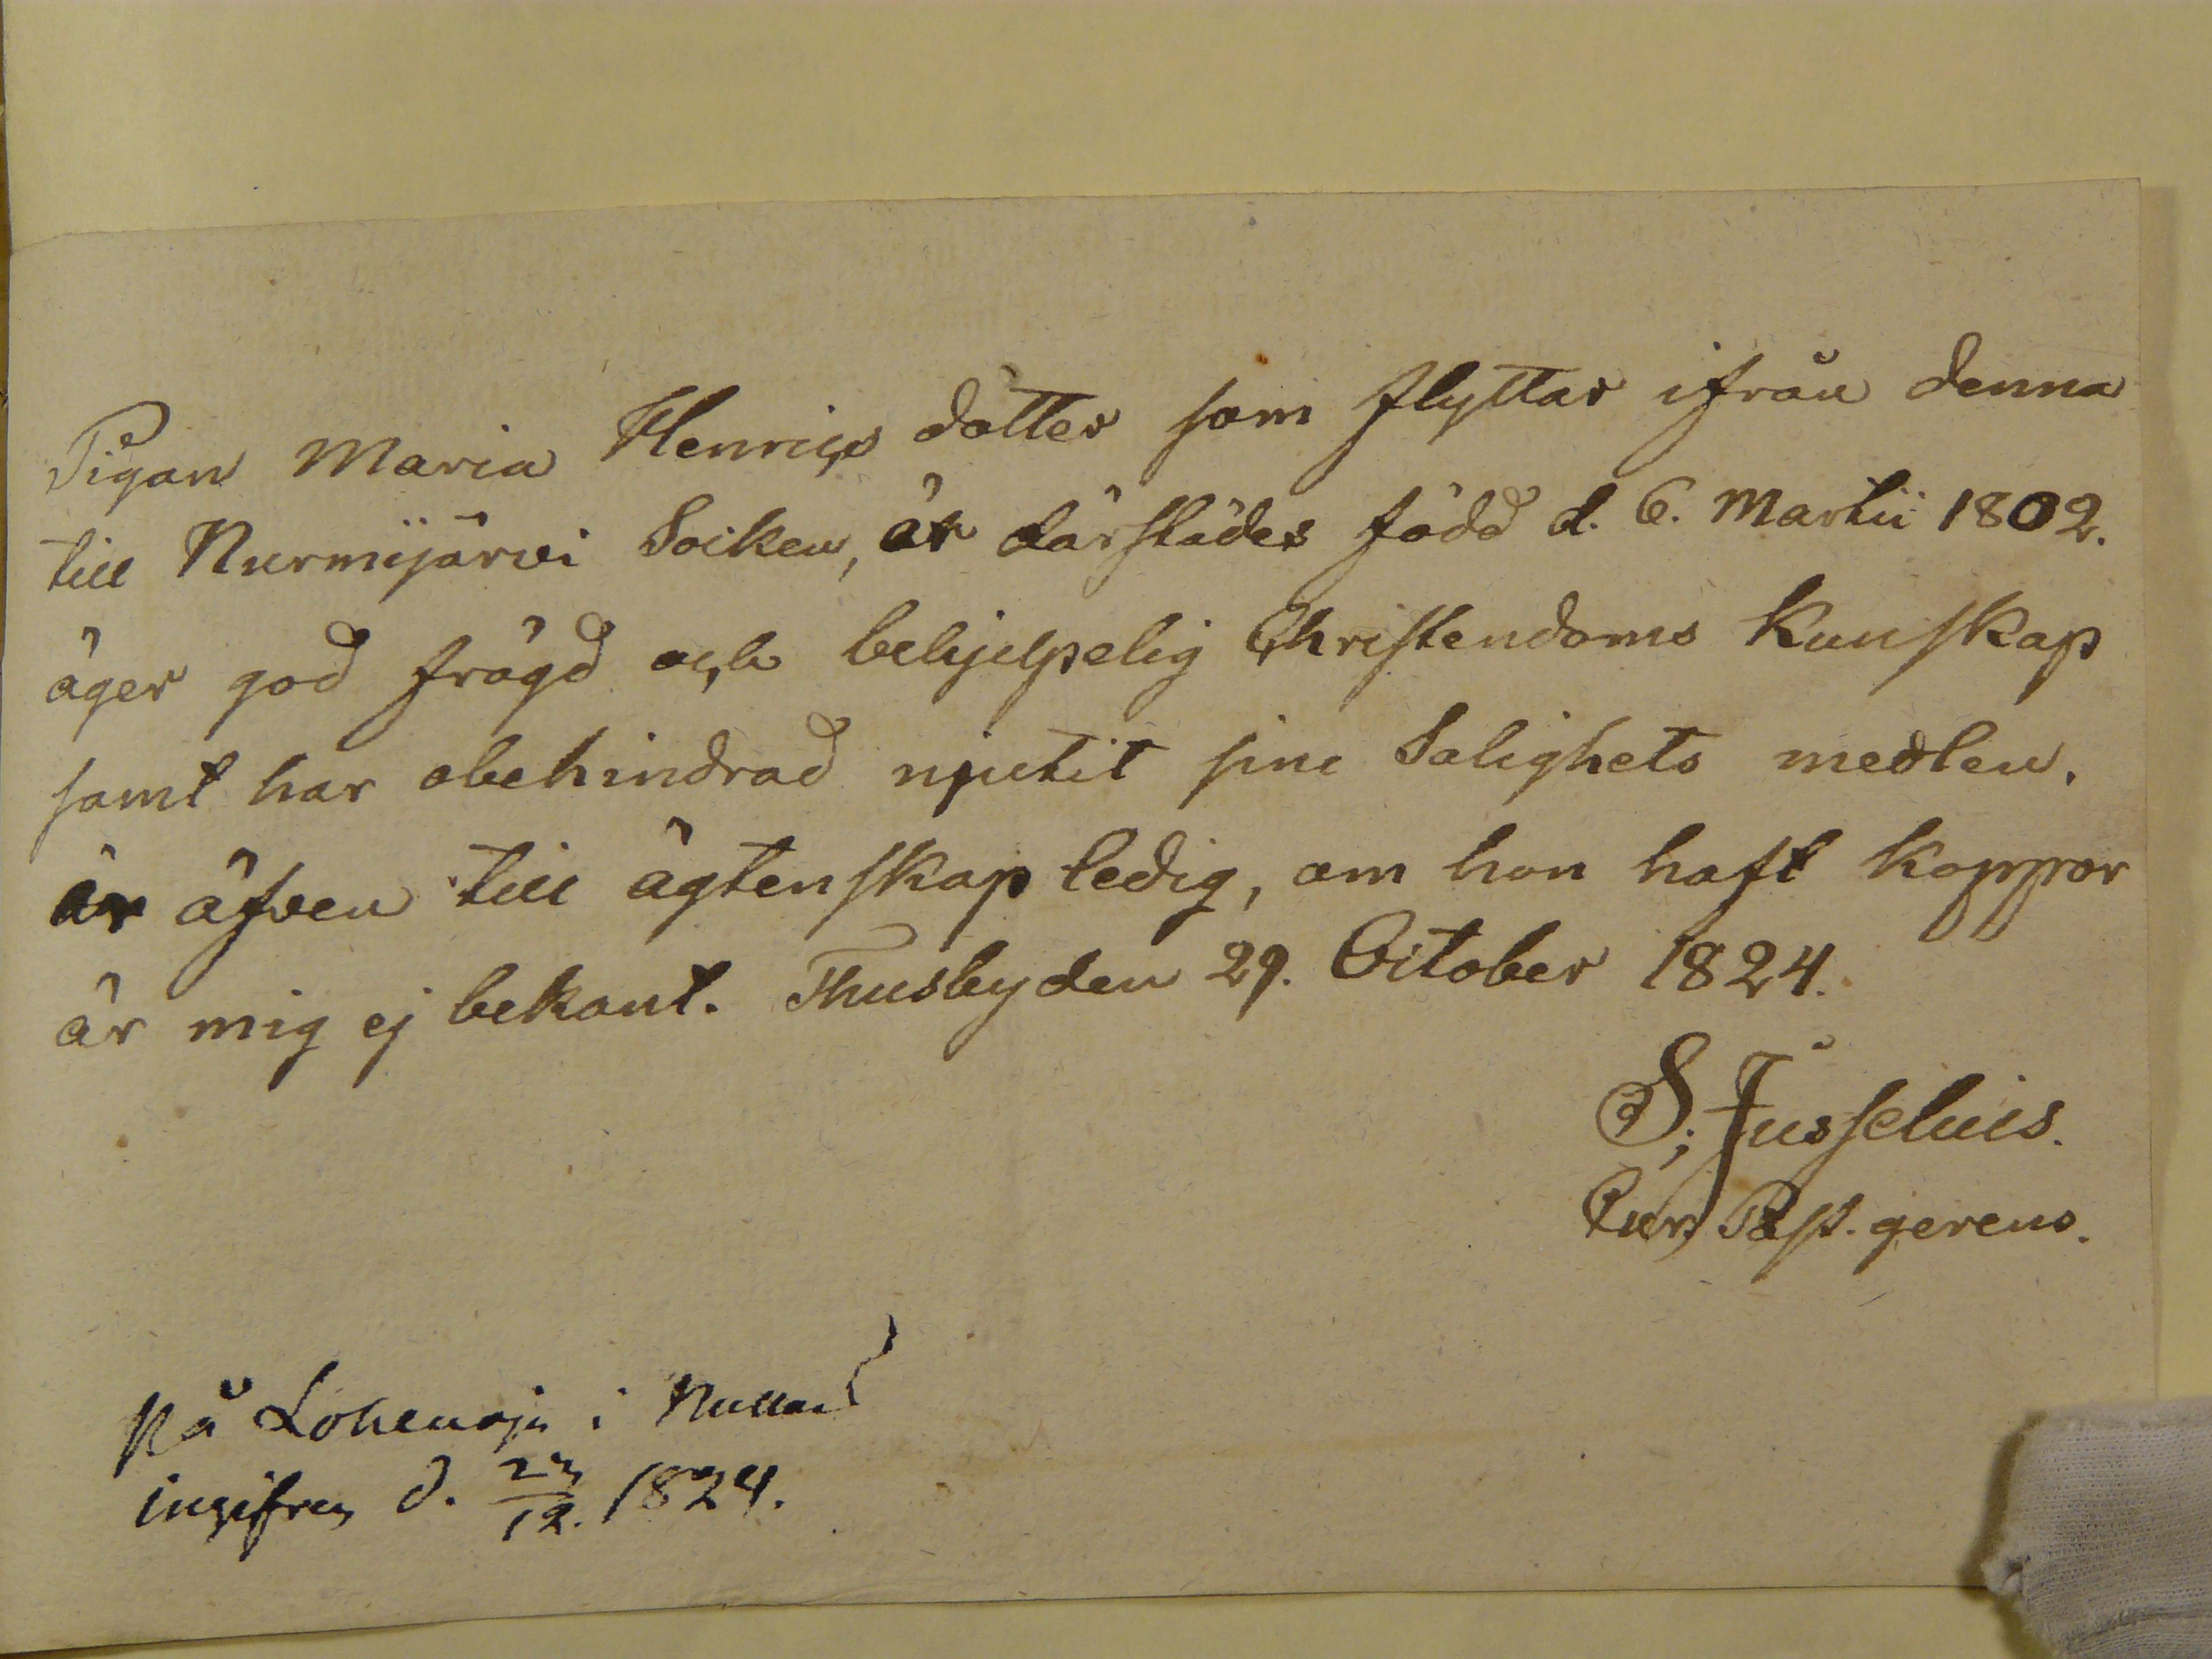 Pigan Maria Henrics dotter som flyttar ifrån denna
till Nurmijärvi Socken, är därstädes född d. 6. Martii 1802.
äger god frägd och behjelpelig Christendoms Kunskap
samt har obehindrad njutit sine Salighets medlen,
är äfven till ägtenskap ledig, om hon haft koppor
är mig ej bekant. Thusby den 29. October 1824.
S. Jusselius.
Cur. Past. gerens.
på i
ingifven d. 23/12. 1824.